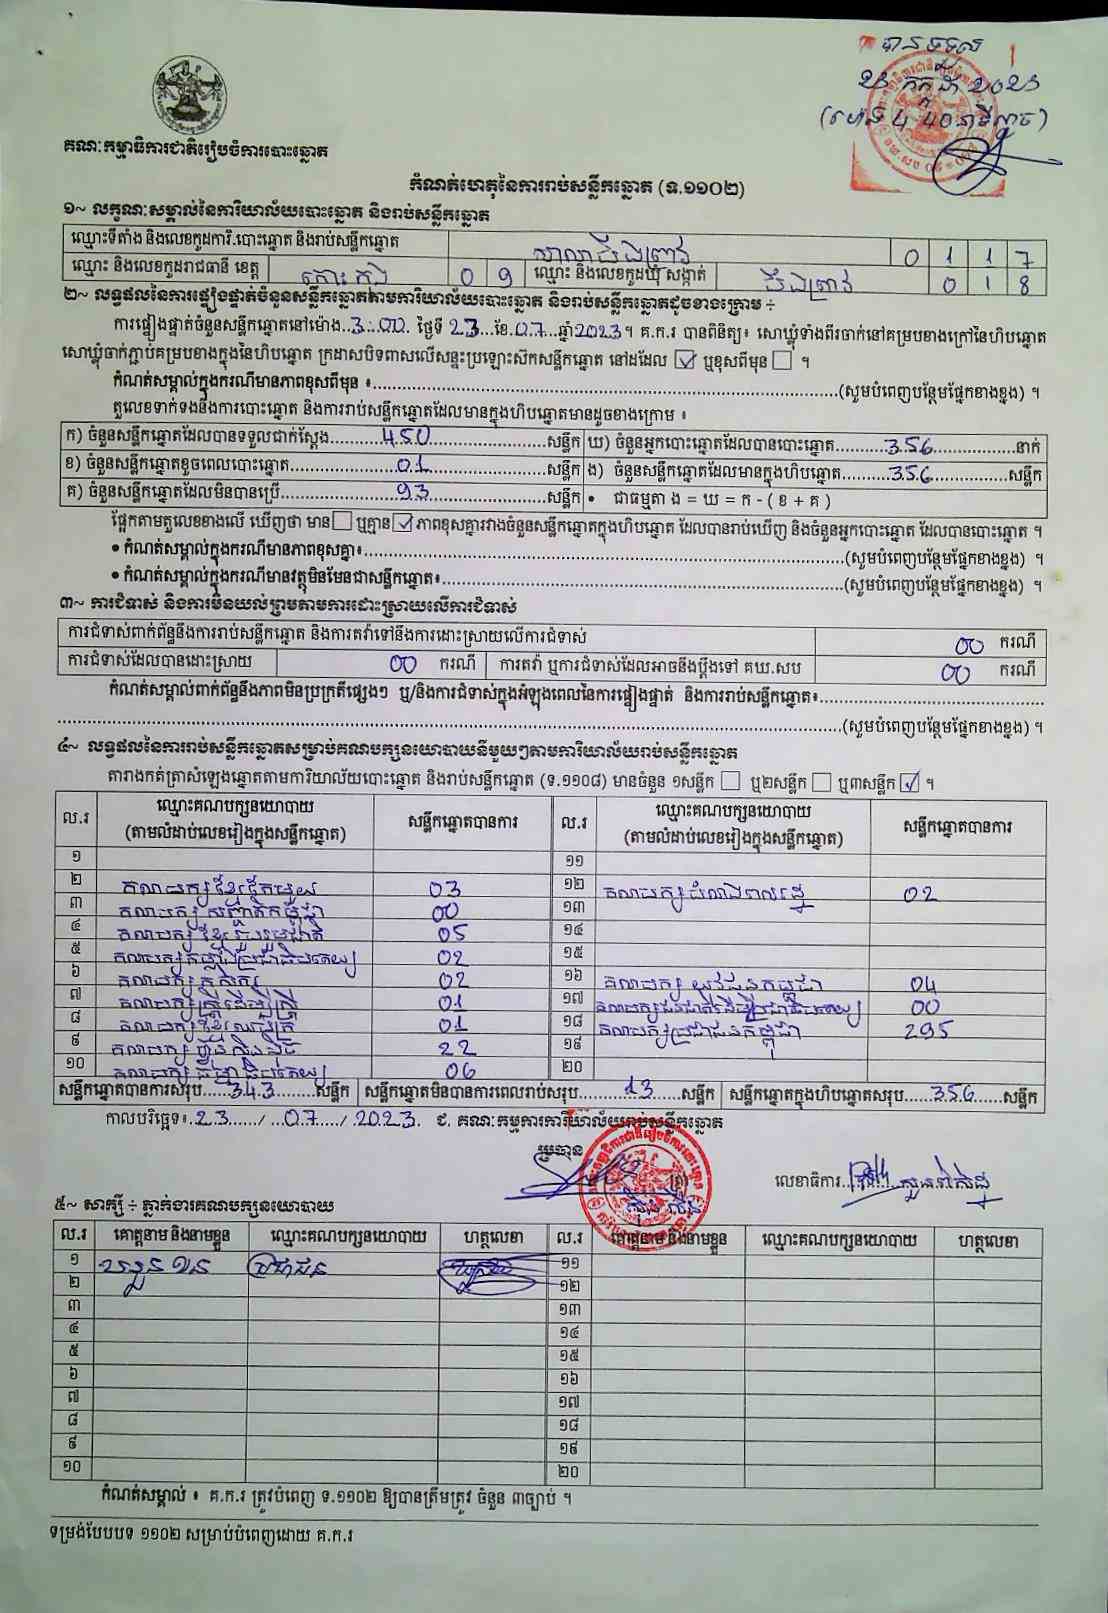 បានទទួល
២៣ កក្កដា ២០២៣
(ម៉ោង 4 40 នាទីល្ងាច)
គណៈកម្មាធិការជាតិរៀបចំការបោះឆ្នោត
កំណត់ហេតុនៃការរាប់សន្លឹកឆ្នោត (ទ.១១០២)
១~ លក្ខណៈសម្គាល់នៃការិយាល័យបោះឆ្នោត និងរាប់សន្លឹកឆ្នោត
ឈ្មោះទីតាំង និងលេខកូដការិ.បោះឆ្នោត និងរាប់សន្លឹកឆ្នោត សាលាជីផាត 0 1 1 7
ឈ្មោះ និងលេខកូដរាជធានី ខេត្ត កោះកុង 0 9 ឈ្មោះ និងលេខកូដឃុំ សង្កាត់ 0 1 8
២~ លទ្ធផលនៃការផ្ទៀងផ្ទាត់ចំនួនសន្លឹកឆ្នោតតាមការិយាល័យបោះឆ្នោត និងរាប់សន្លឹកឆ្នោតដូចខាងក្រោម ÷
ការផ្ទៀងផ្ទាត់ចំនួនសន្លឹកឆ្នោតនៅម៉ោង..3:00. ថ្ងៃទី 23...ខែ.07...ឆ្នាំ2023។ គ.ក.រ បានពិនិត្យ៖ សោឃ្លុំទាំងពីរចាក់នៅគម្របខាងក្រៅនៃហិបឆ្នោត
សោឃ្លុំចាក់ភ្ជាប់គម្របខាងក្នុងនៃហិបឆ្នោត ក្រដាសបិទពាសលើសន្ទះប្រឡោះសិកសន្លឹកឆ្នោត នៅដដែល ☑ ឬខុសពីមុន ☐ ។
កំណត់សម្គាល់ក្នុងករណីមានភាពខុសពីមុន ៖..........(សូមបំពេញបន្ថែមផ្នែកខាងខ្នង) ។
តួលេខទាក់ទងនឹងការបោះឆ្នោត និងការរាប់សន្លឹកឆ្នោតដែលមានក្នុងហិបឆ្នោតមានដូចខាងក្រោម ៖
ក) ចំនួនសន្លឹកឆ្នោតដែលបានទទួលជាក់ស្តែង..........450..........សន្លឹក ឃ) ចំនួនអ្នកបោះឆ្នោតដែលបានបោះឆ្នោត..........356..........នាក់
ខ) ចំនួនសន្លឹកឆ្នោតខូចពេលបោះឆ្នោត..........01..........សន្លឹក ង) ចំនួនសន្លឹកឆ្នោតដែលមានក្នុងហិបឆ្នោត..........356..........សន្លឹក
គ) ចំនួនសន្លឹកឆ្នោតដែលមិនបានប្រើ..........93..........សន្លឹក • ជាធម្មតា ង = ឃ = ក - ( ខ + គ )
ផ្អែកតាមតួលេខខាងលើ ឃើញថា មាន ☐ ឬគ្មាន ☑ ភាពខុសគ្នារវាងចំនួនសន្លឹកឆ្នោតក្នុងហិបឆ្នោត ដែលបានរាប់ឃើញ និងចំនួនអ្នកបោះឆ្នោត ដែលបានបោះឆ្នោត ។
• កំណត់សម្គាល់ក្នុងករណីមានភាពខុសគ្នា៖..........(សូមបំពេញបន្ថែមផ្នែកខាងខ្នង) ។
• កំណត់សម្គាល់ក្នុងករណីមានវត្ថុមិនមែនជាសន្លឹកឆ្នោត៖..........(សូមបំពេញបន្ថែមផ្នែកខាងខ្នង) ។
៣~ ការជំទាស់ និងការមិនយល់ព្រមតាមការដោះស្រាយលើការជំទាស់
ការជំទាស់ពាក់ព័ន្ធនឹងការរាប់សន្លឹកឆ្នោត និងការតវ៉ាទៅនឹងការដោះស្រាយលើការជំទាស់ 00 ករណី
ការជំទាស់ដែលបានដោះស្រាយ 00 ករណី ការតវ៉ា ឬការជំទាស់ដែលអាចនឹងប្តឹងទៅ គឃ.សប 00 ករណី
កំណត់សម្គាល់ពាក់ព័ន្ធនឹងភាពមិនប្រក្រតីផ្សេងៗ ឬ/និងការជំទាស់ក្នុងអំឡុងពេលនៃការផ្ទៀងផ្ទាត់ និងការរាប់សន្លឹកឆ្នោត៖..........
..........(សូមបំពេញបន្ថែមផ្នែកខាងខ្នង) ។
៤~ លទ្ធផលនៃការរាប់សន្លឹកឆ្នោតសម្រាប់គណបក្សនយោបាយនីមួយៗតាមការិយាល័យរាប់សន្លឹកឆ្នោត
តារាងកត់ត្រាសំឡេងឆ្នោតតាមការិយាល័យបោះឆ្នោត និងរាប់សន្លឹកឆ្នោត (ទ.១១០៨) មានចំនួន ១សន្លឹក ☐ ឬ២សន្លឹក ☐ ឬ៣សន្លឹក ☑ ។
ល.រ ឈ្មោះគណបក្សនយោបាយ (តាមលំដាប់លេខរៀងក្នុងសន្លឹកឆ្នោត) សន្លឹកឆ្នោតបានការ ល.រ ឈ្មោះគណបក្សនយោបាយ (តាមលំដាប់លេខរៀងក្នុងសន្លឹកឆ្នោត) សន្លឹកឆ្នោតបានការ
១ ១១
២ គណបក្សខ្មែរតែមួយ 03 ១២ គណបក្សដំណឹងពលរដ្ឋ 02
៣ គណបក្សសញ្ជាតិកម្ពុជា 00 ១៣
៤ គណបក្សខ្មែររួបរួមជាតិ 05 ១៤
៥ គណបក្សកម្លាំងប្រជាធិបតេយ្យ 02 ១៥
៦ គណបក្សកសិករ 02 ១៦ គណបក្សយុវជនកម្ពុជា 04
៧ គណបក្សស្ត្រីដើម្បីស្ត្រី 01 ១៧ គណបក្សជនជាតិដើមប្រជាធិបតេយ្យ 00
៨ គណបក្សខ្មែរ 01 ១៨ គណបក្សប្រជាជនកម្ពុជា 295
៩ គណបក្សហ្វ៊ុនស៊ិនប៉ិច 22 ១៩
១០ គណបក្សធម្មាធិបតេយ្យ 06 ២០
សន្លឹកឆ្នោតបានការសរុប....343......សន្លឹក សន្លឹកឆ្នោតមិនបានការពេលរាប់សរុប......13......សន្លឹក សន្លឹកឆ្នោតក្នុងហិបឆ្នោតសរុប......356......សន្លឹក
កាលបរិច្ឆេទ៖.23....../...07....../2023. ជ. គណៈកម្មការការិយាល័យរាប់សន្លឹកឆ្នោត
ប្រធាន
លេខាធិការ
៥~ សាក្សី ÷ ភ្នាក់ងារគណបក្សនយោបាយ
ល.រ គោត្តនាម និងនាមខ្លួន ឈ្មោះគណបក្សនយោបាយ ហត្ថលេខា ល.រ គោត្តនាម និងនាមខ្លួន ឈ្មោះគណបក្សនយោបាយ ហត្ថលេខា
១ ប្រជាជន ១១
២ ១២
៣ ១៣
៤ ១៤
៥ ១៥
៦ ១៦
៧ ១៧
៨ ១៨
៩ ១៩
១០ ២០
កំណត់សម្គាល់ ៖ គ.ក.រ ត្រូវបំពេញ ទ.១១០២ ឱ្យបានត្រឹមត្រូវ ចំនួន ៣ច្បាប់ ។
ទម្រង់បែបបទ ១១០២ សម្រាប់បំពេញដោយ គ.ក.រ